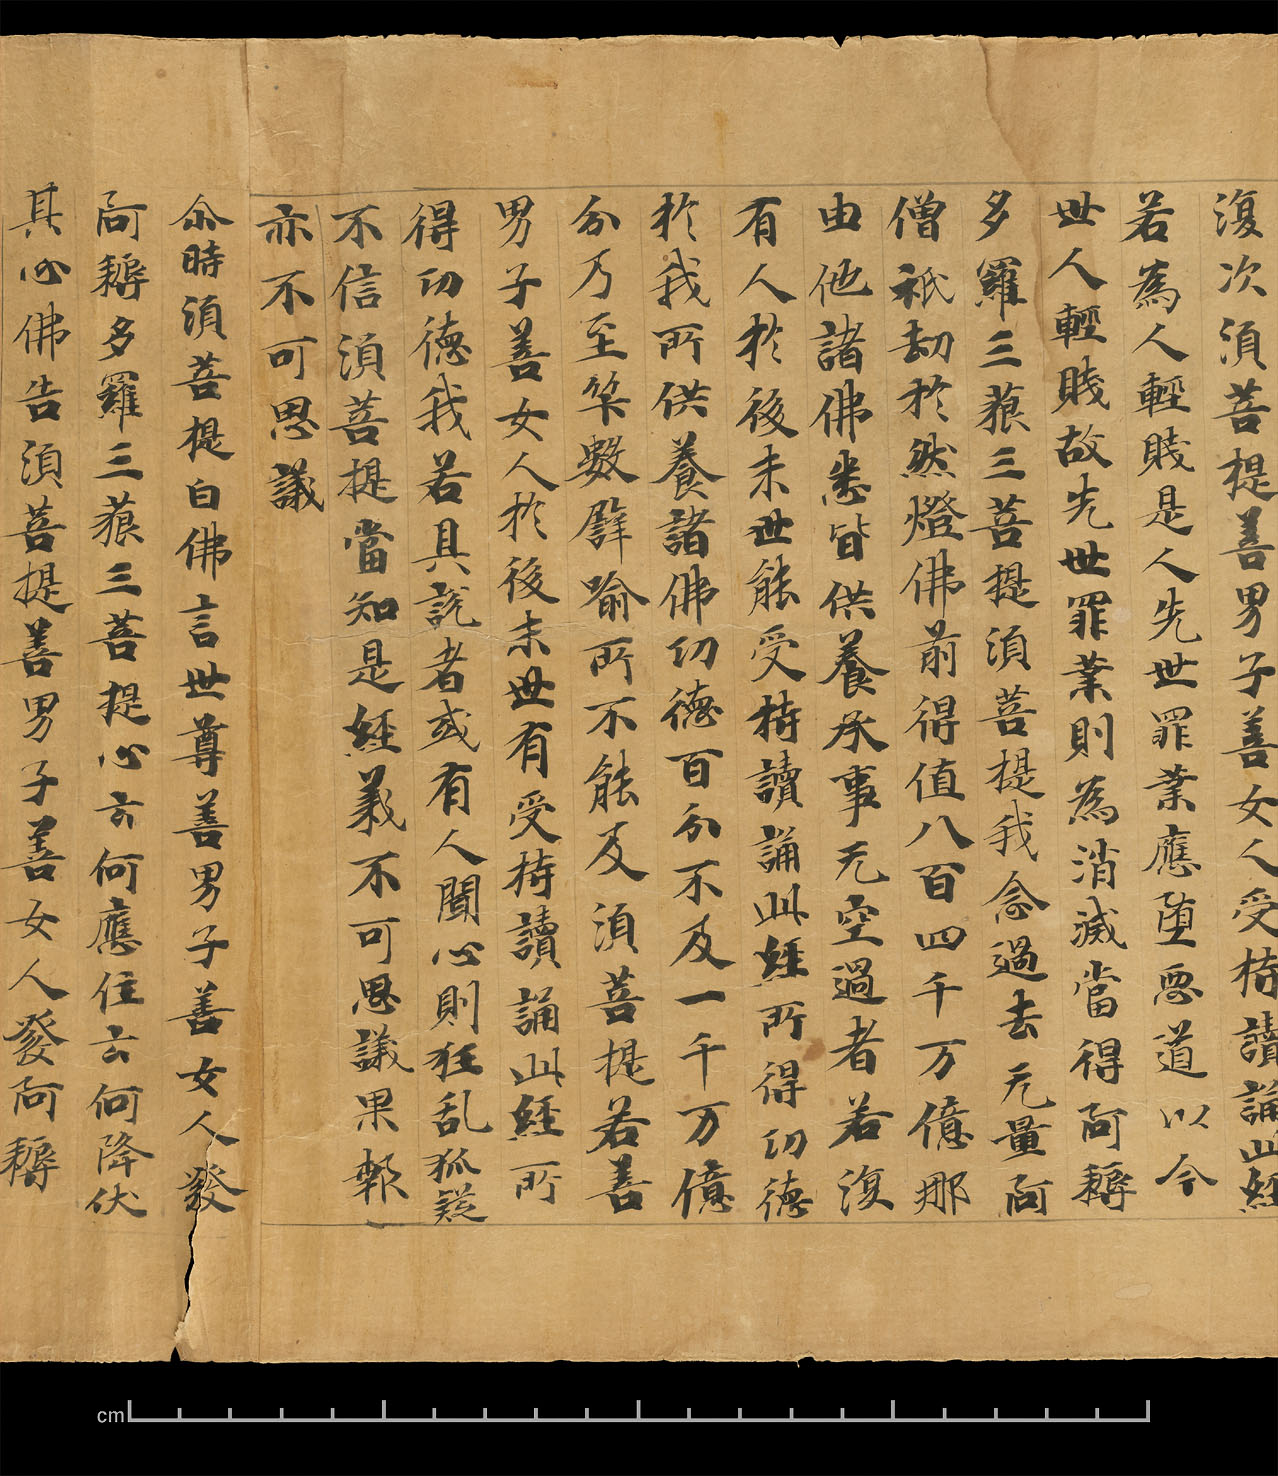 復次須菩提善男子善女人受持讀誦此經
若為人輕賤是人先世罪業應堕惡道以今
世人輕賤故先世罪業則為消滅當得阿耨
多羅三藐三菩提須菩提我念過去无量阿
僧祇劫於然燈佛前得值八百四千万億那
由他諸佛悉皆供養承事无空過者若復
有人於後末世能受持讀誦此經所得功德
於我所供養諸佛功德百分不及一千万億
分乃至筭數譬喻所不能及須菩提若善
男子善女人於後末世有受持讀誦此經所
得功德我若具說者或有人聞心則狂乱狐疑
不信須菩提當知是經義不可思議果報
亦不可思議
尒時須菩提白佛言世尊善男子善女人發
阿耨多羅三藐三菩提心云何應住云何降伏
其心佛告須菩提善男子善女人發阿耨
cm